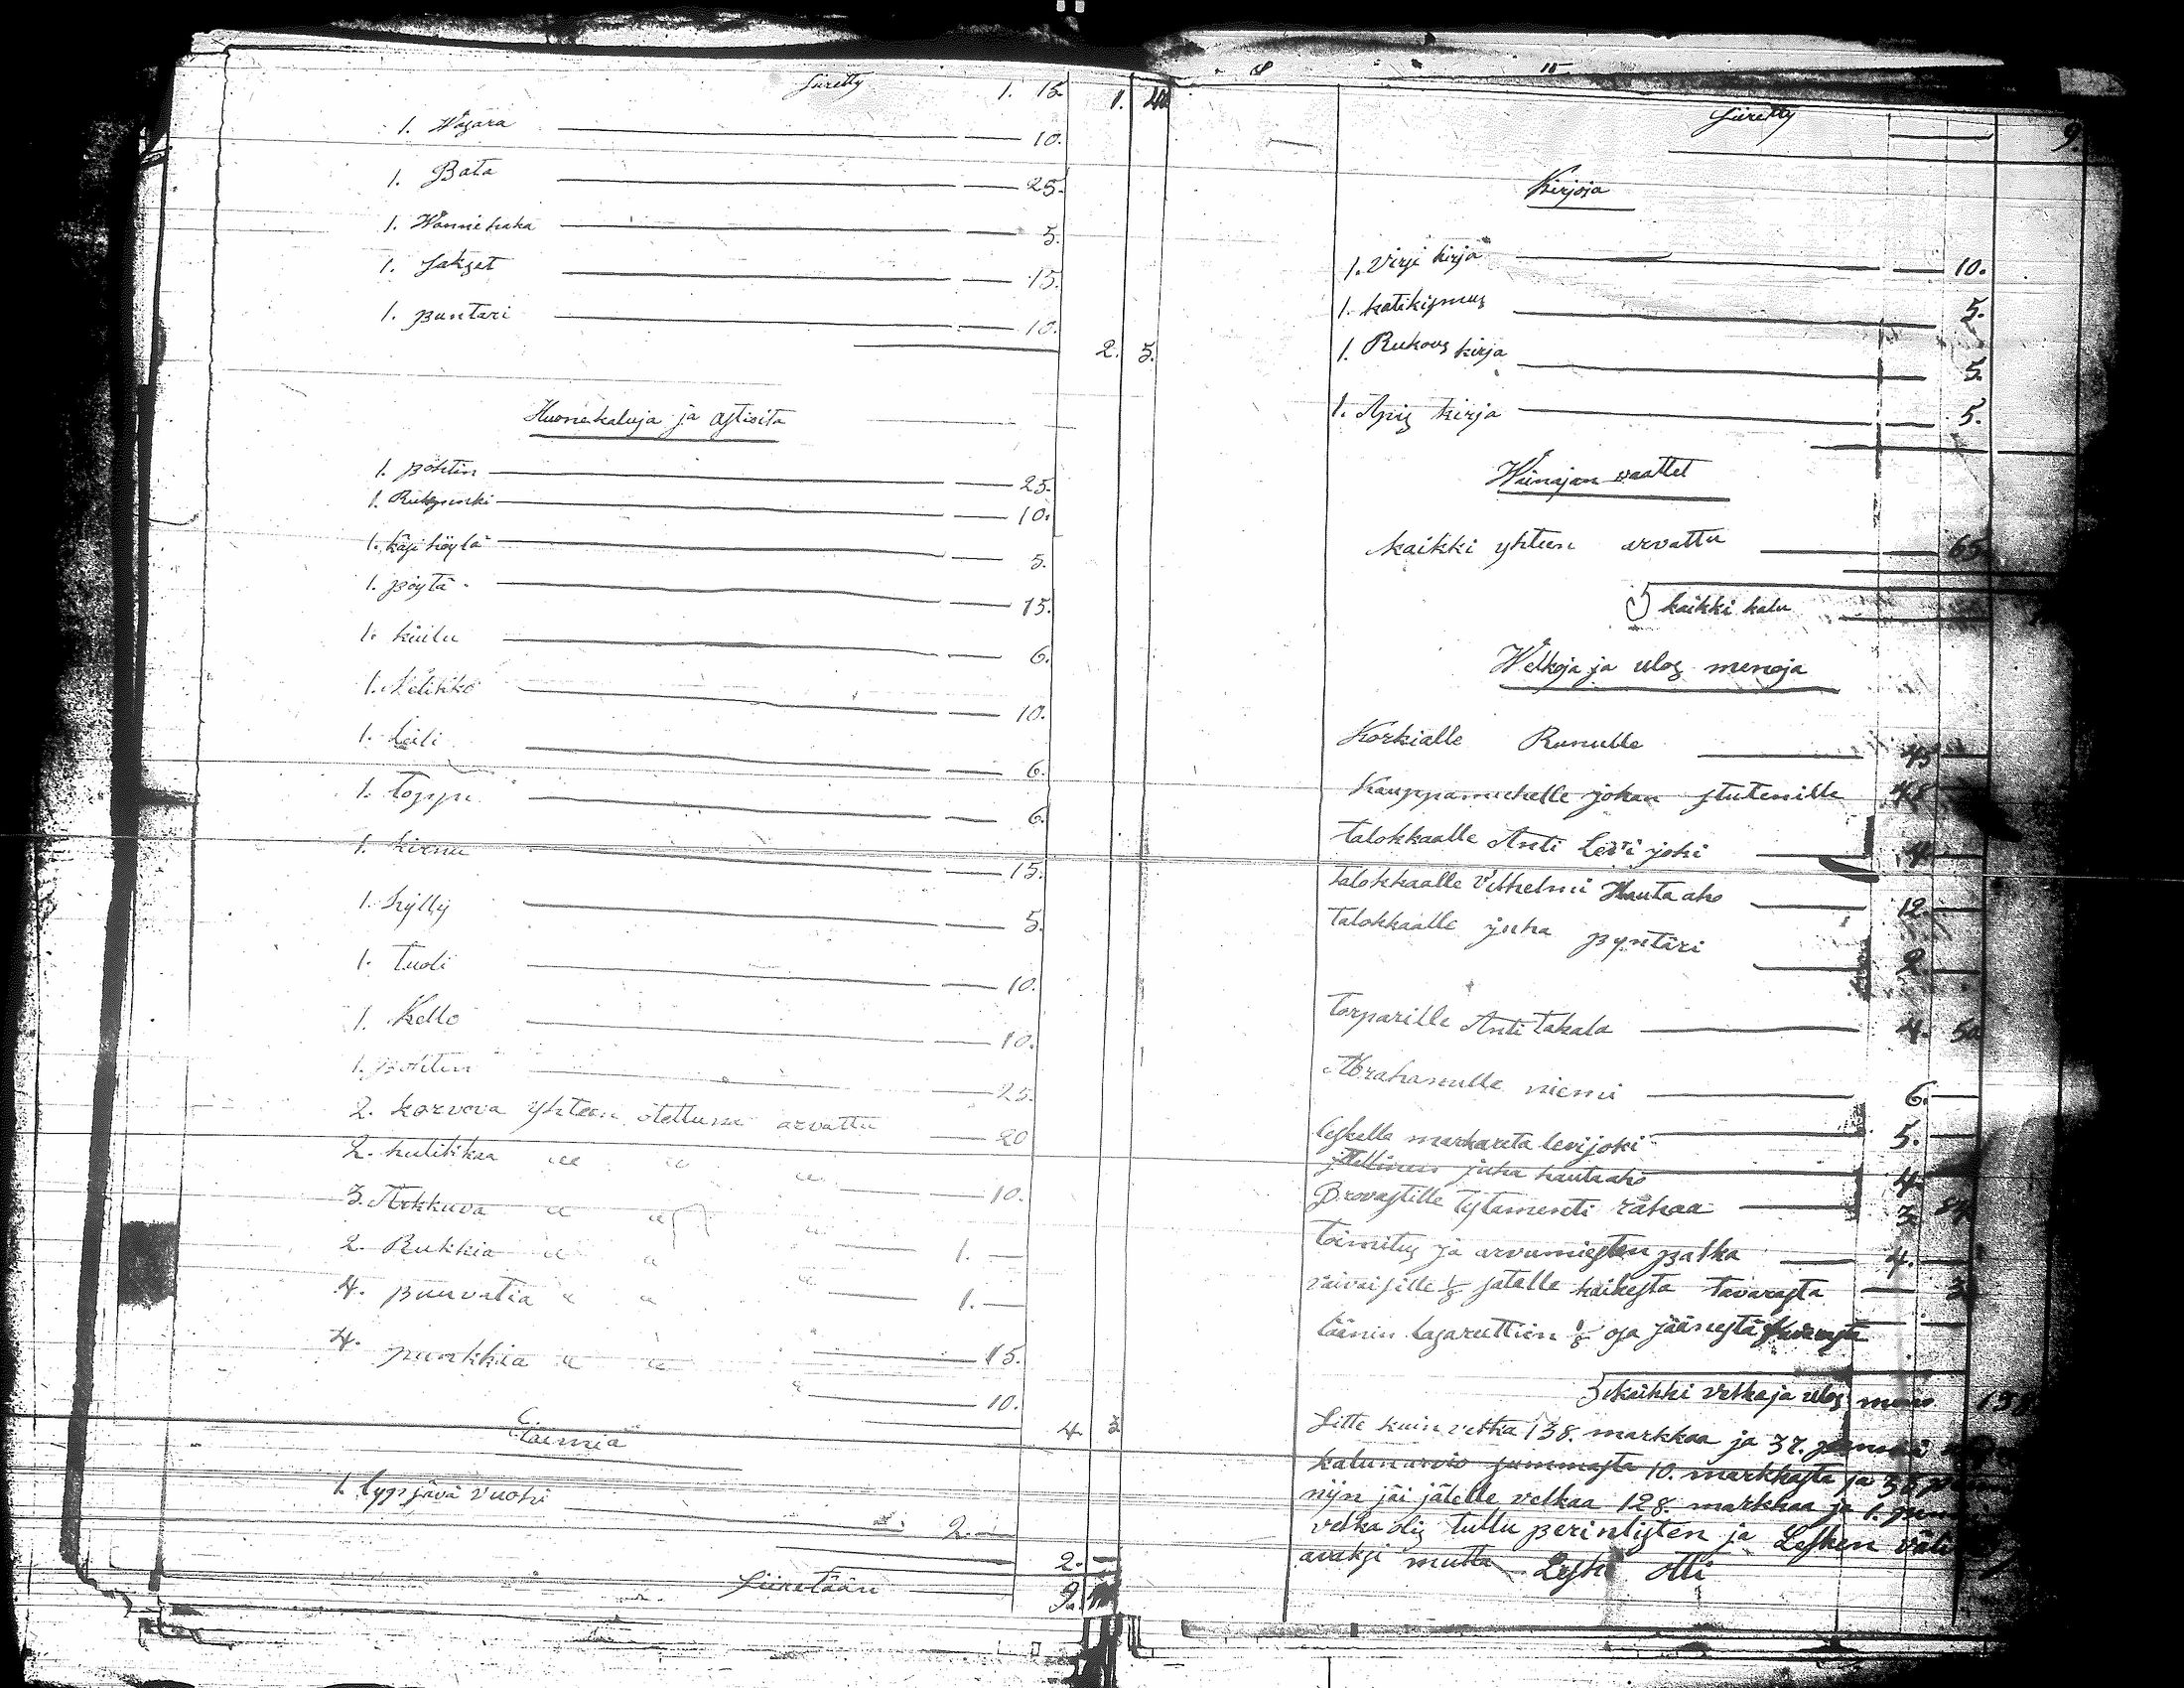 Siiretty 1. 15. 1. 40
1. Wasara 10.
1. Bata 25.
1. Wannehaka 5.
1. Sakset 15.
1. puntari 10.
2. 5.
Huonekaluja ja astioita
1. pöhtin 25.
1. Rukpenki 10.
1. käsi höylä 5.
1. pöytä 15.
1. kiulu 6.
1. 10.
1. Leili 6.
1. toppu 6.
1. kirnu 15.
1. hylly 5.
1. tuoli 10.
1. Kello 10.
1. pöhtin 25.
2. korvova yhteen otettuna arvattu 20
2. hulikkaa " " " 10.
3. Arkkuva " " " 1. —
2. Rukkia " " " 1. —
4. puuvatia " " 15.
4. punkkia " " 10.
4. 3
C.
1. lypsävä vuohi 2. —
2. —
Siiretään 9.
8 15
Siiretty 9.
Kirjoja
1. Virsi kirja 10.
1. katikismus 5.
1. Rukous kirja 5.
1. Apis kirja 5.
Wainajan vaattet
kaikki yhteen arvattu 65
S kaikki kalu
Welkoja ja ulos menoja
Korkialle Runulle 45
Kauppamiehelle johan stutenille 48
talokkaalle Anti Levijoki 4
talokkaalle Vilhelmi Hautaaho 12.
talokkaalle juha pyntäri 2.
torparille Anti takala 4. 50
Abrahamille niemi 6.
leskelle markareta levijoki 5.
juha hautaaho 4.
Brovastille tystamenti rahaa 3 84
toimitus ja arvumiesten palka 4.
vaivaisille 1/8 satalle kaikesta tavarasta 3
läänin lasaruttien 1/8 osa jäänestä
S kaikki velkaja ulos meno 138
Sitte kuin velka 138. markkaa ja 37. penniä
kalun arvio summasta 10. markkasta ja 36
niin jäi jälelle velkaa 128. markkaa ja 1.
velka olis tullu perinlisten ja Lesken
avaksi mutta Leski otti